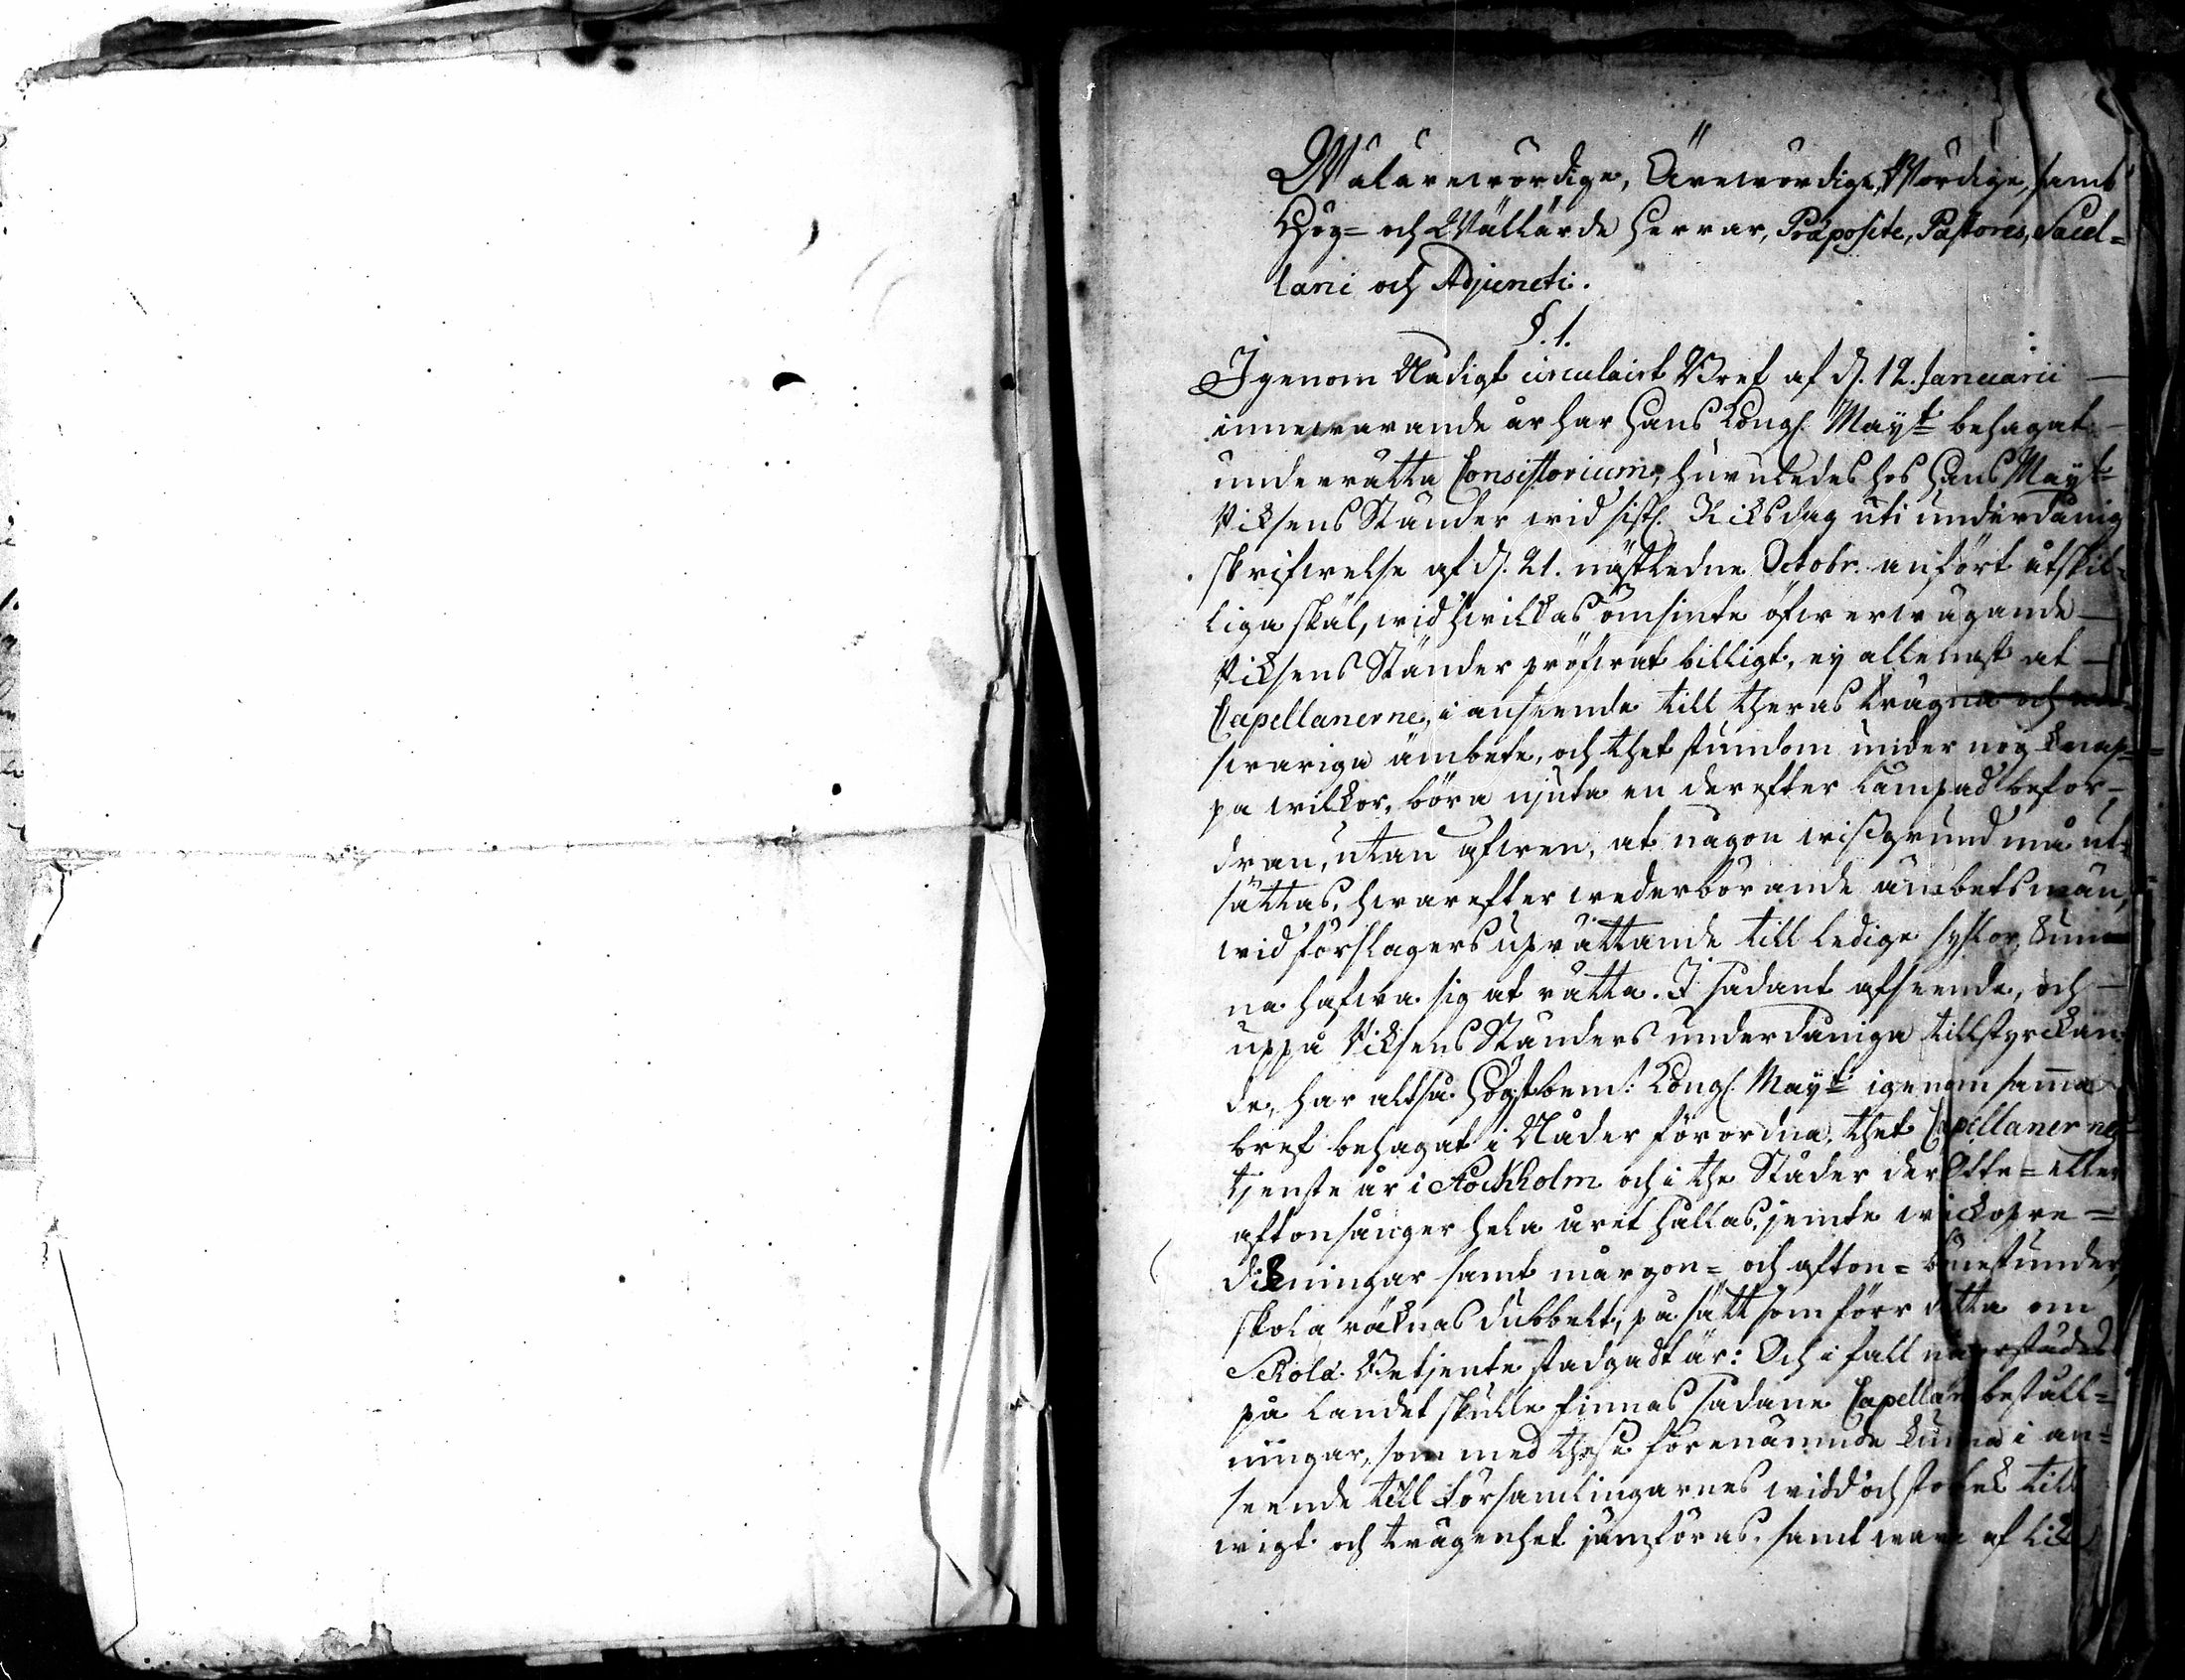 Wälärewördige, Ärewördige, Wördige, samt
Hög= och Wällärde Herrar, Præposite, Pastores, Sacel=
lani och Adjuncti.
§. 1.
Igenom Nådigt circulairt Bref af d. 12. Januarii
innewarande år har Hans Kongl. Mayt behagat
underrätta Consistorium, huruledes hos Hans Mayt
Riksens Ständer wid sistl. Riksdag uti underdånig
skrifwelse af d. 21. nästledne Octobr. anfört åtskil=
liga skäl, wid hwilkas ömsinte öfwerwägande
Riksens Ständer pröfwat billigt, ej allenast at
Capellanerne, i anseende till theras trägna och an=
swariga ämbete, och thet stundom under nog knap=
pa wilkor, böra njuta en derefter lämpad befor=
dran, utan äfwen, at någon wiss grund må ut=
sättas, hwarefter wederbörande ämbetsmän,
wid förslagers uprättande till ledige syslor, kun=
na hafwa sig at rätta. I sådant afseende, och
uppå Riksens Ständers underdåniga tillstyrckan=
de, har altså Högstbem:t Kongl. Mayt igenom samma
bref behagat i Nåder förordna, thet Capellanernes
tjenste år i Stockholm och i the Städer der Otte= eller
aftonsånger hela året hållas, jemte weckopre=
dikningar samt mårgon= och afton= bönestunder,
skola räknas dubbelt, på sätt som förr detta om
Schola Betjente stadgadt är: Och i fall någorstädes
på landet skulle finnas sådane Capellans beställ=
ningar, som med thesse förenämnde kunna i an=
seende till församlingarnes widd och storlek till
wigt och trägenhet jämföras, samt ware af lika